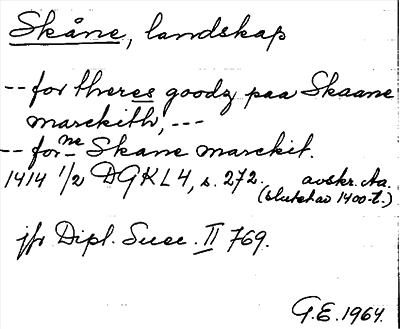 Skåne, landskap
-- for theres goodz paa Skaane
marckith, ---
-- forne Skane marckit.
1414 1/2 DGKL4, s. 272. avskr. Aa.
(slutet av 1400-t.)
jfr Dipl. Suec. II 769.
G.E. 1964.